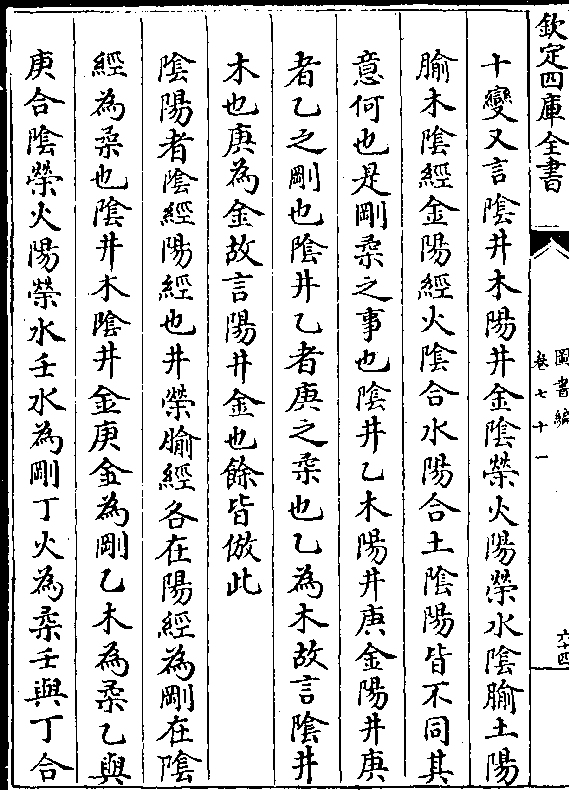 欽定四庫全書
圖書編
卷七十一
六十四
十變又言隂井木陽井金隂滎火陽滎水隂腧土陽
腧木隂經金陽經火隂合水陽合土隂陽皆不同其
意何也是剛柔之事也隂井乙木陽井庚金陽井庚
者乙之剛也隂井乙者庚之柔也乙為木故言隂井
木也庚為金故言陽井金也餘皆倣此
隂陽者隂經陽經也井滎腧經各在陽經為剛在隂
經為柔也隂井木隂井金庚金為剛乙木為柔乙與
庚合隂滎火陽滎水壬水為剛丁火為柔壬與丁合